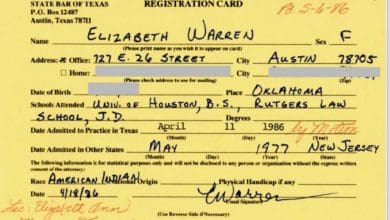 STATE BAR OF TEXAS
P.O. Box 12487
Austin, Texas 78711
REGISTRATION CARD
Pd. 5-6-86
Name ELIZABETH WARREN Sex F
(Please print name as you wish it to appear on card)
Address: Office: 727 E. 26 STREET City AUSTIN 78705
Home: City
(Please check address to use for mailing)
Date of Birth Place OKLAHOMA
Schools Attended UNIV. OF HOUSTON, B.S., RUTGERS LAW
SCHOOL, J.D.
Date Admitted to Practice in Texas April 11 1986 by Motion
Date Admitted in Other States MAY 1977 NEW JERSEY
The following information is for statistical purposes only and will not be disclosed to any person or organization without the express written
consent of the attorney.
Race AMERICAN INDIAN National Origin Physical Handicap if any
Date 4/18/86 EWarren
Usual Signature
Lic: Elizabeth Ann
(Use Reverse Side if Necessary)